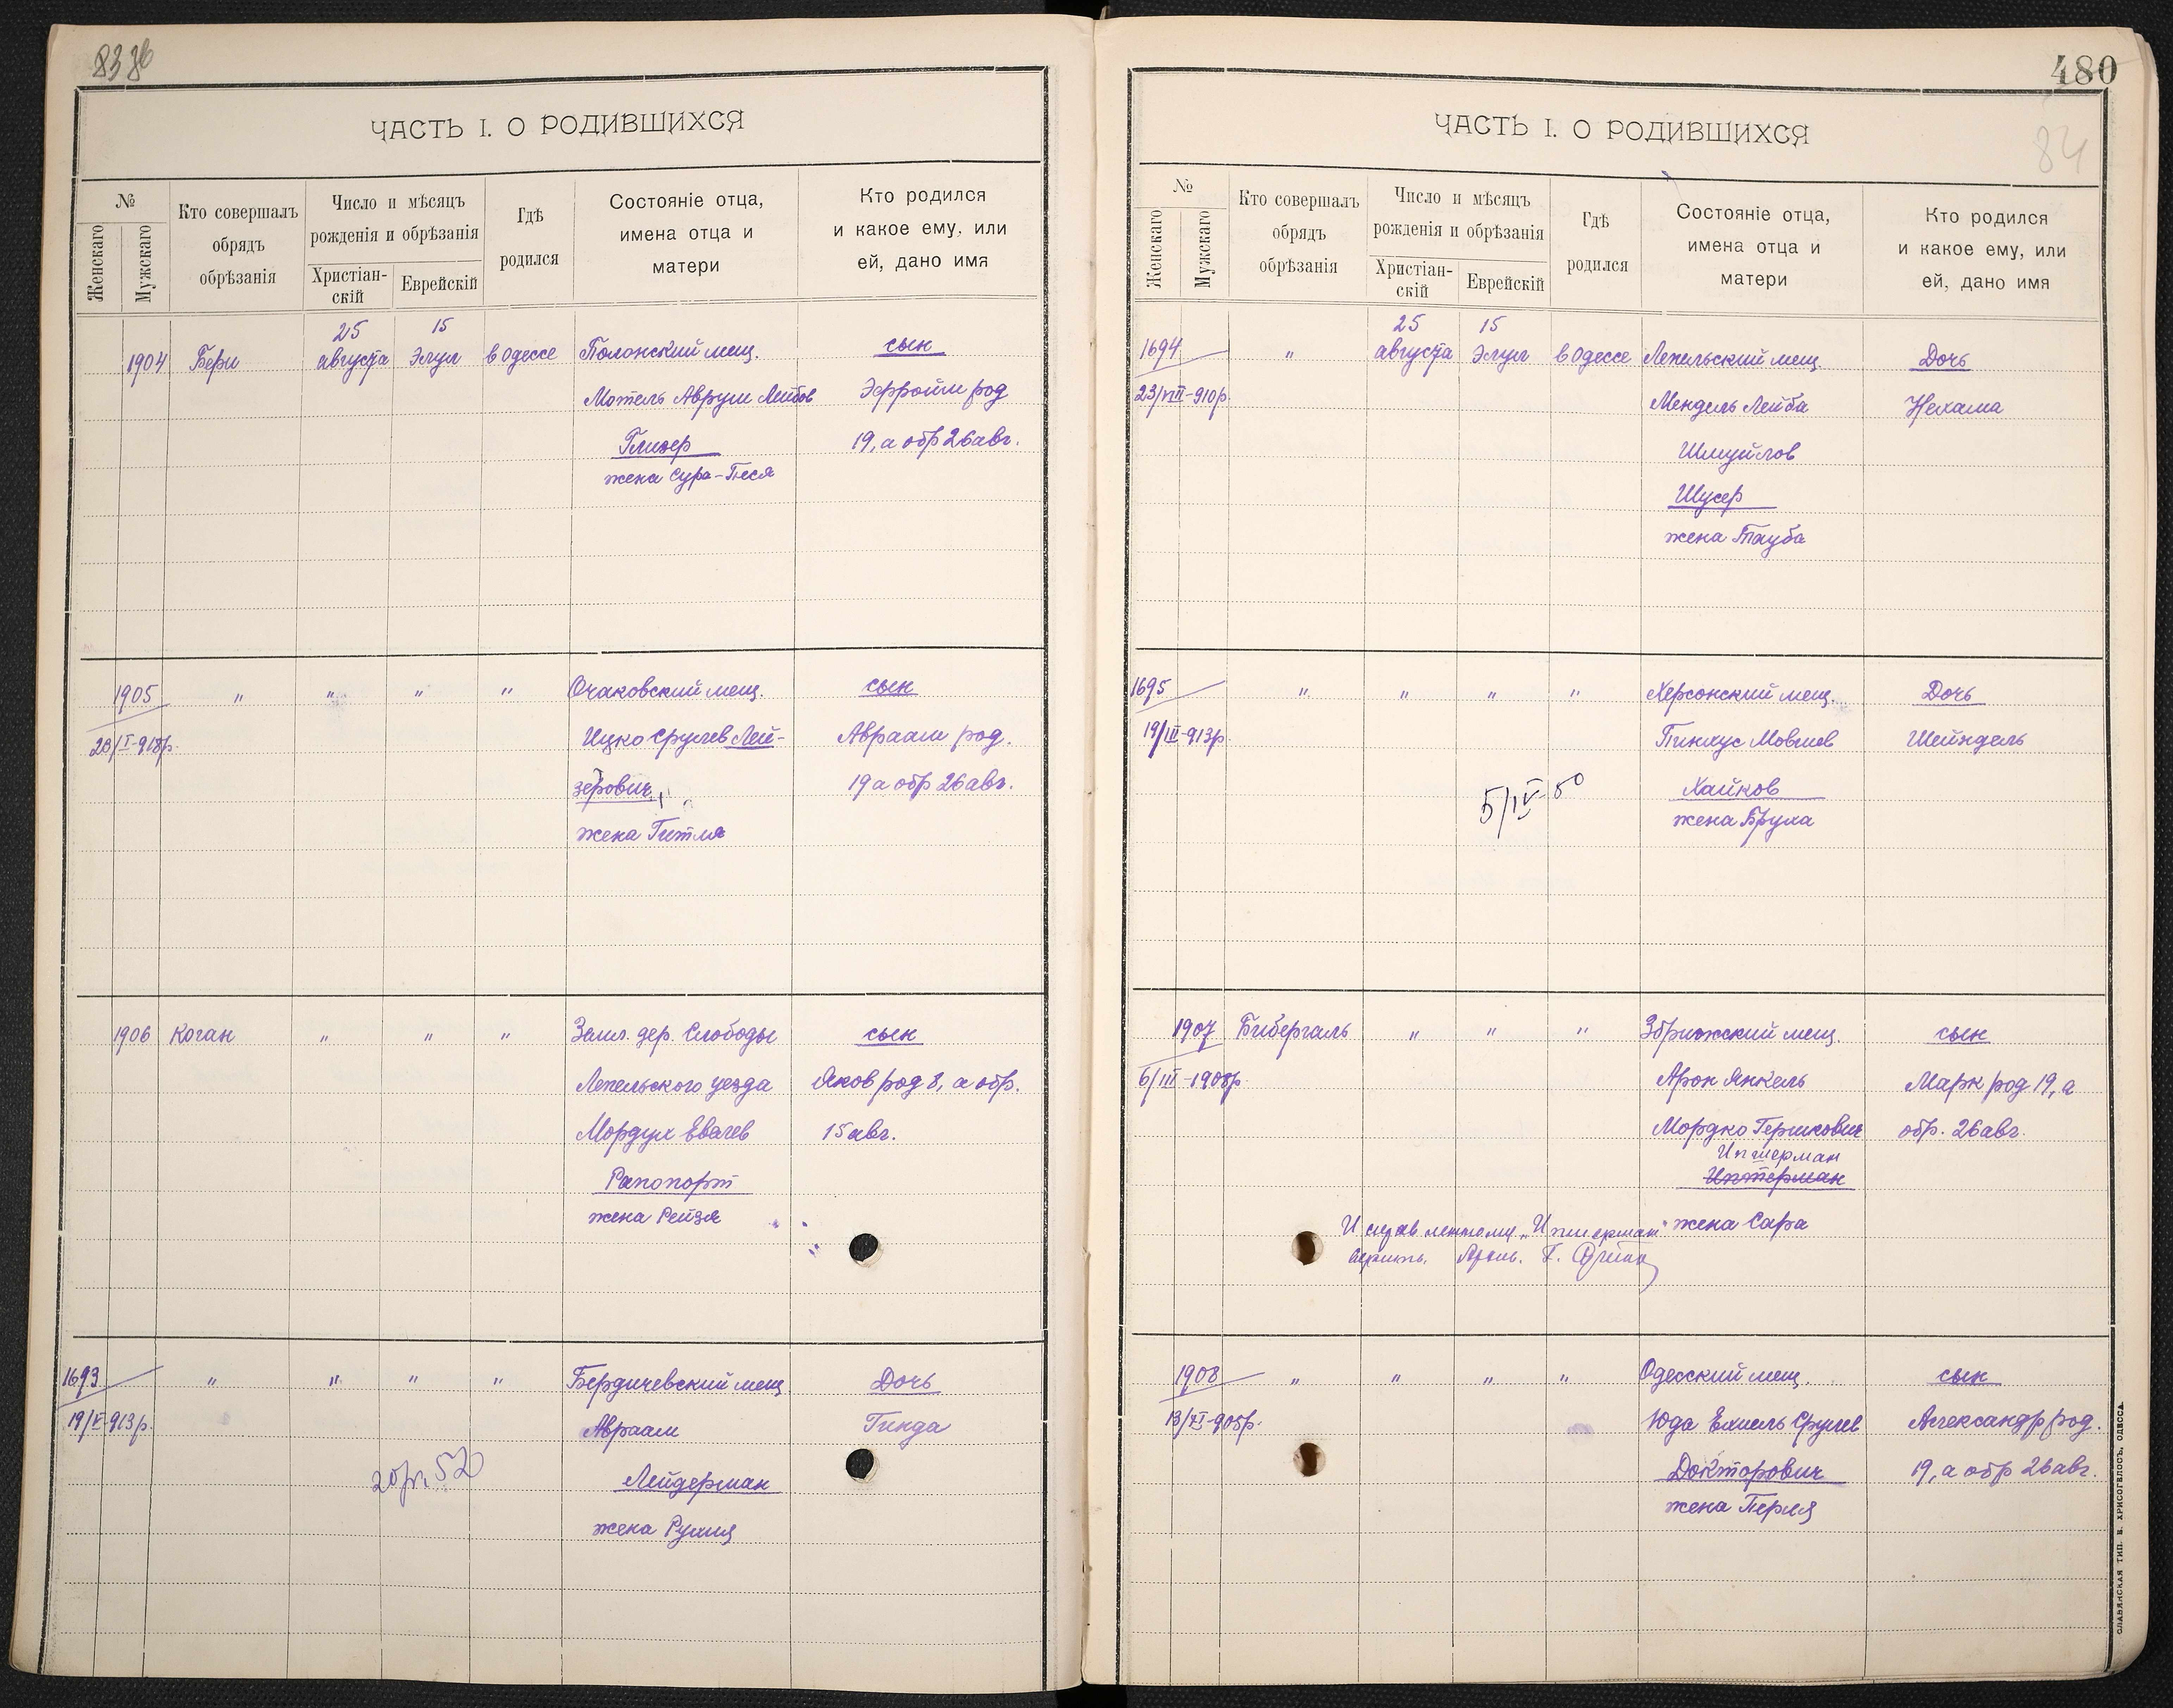 ЧАСТЬ I. О РОДИВШИХСЯ
№
Женскаго
Мужскаго
Кто совершалъ
обрядъ
обрѣзанія
Число и мѣсяцъ
рожденія и обрѣзанія
Христіан-
скій
Еврейскій
Гдѣ
родился
Состояніе отца,
имена отца и
матери
Кто родился
и какое ему, или
ей, дано имя
1904 Бери 25 августа 15 Элул в Одессе Полонский мещ. сын
Мотель Аврум Лейбов Эфроим род
Глизер 19, а обр 26 авг.
жена Сура-Песя
1905 " " " " Очаковский мещ. сын
28/I-918р. Ицко Срулев Лей- Авраам род.
зерович 19 а обр 26 авг.
жена Гитля
1906 Коган " " " Земл. дер. Слободы сын
Лепельского уезда Яков род 8, а обр.
Мордух Евелев 15 авг.
Рапопорт
жена Рейзя
1693 " " " " Бердичевский мещ Дочь
19/V-913р. Авраам Гинда
Лейдерман
жена Рухля
480
84
ЧАСТЬ I. О РОДИВШИХСЯ
№
Женскаго
Мужскаго
Кто совершалъ
обрядъ
обрѣзанія
Число и мѣсяцъ
рожденія и обрѣзанія
Христіан-
скій
Еврейскій
Гдѣ
родился
Состояніе отца,
имена отца и
матери
Кто родился
и какое ему, или
ей, дано имя
1694 " 25 августа 15 Элул в Одессе Лепельский мещ. Дочь
23/VIII-910р. Мендель Лейба Нехама
Шмуйлов
Шусер
жена Тауба
1695 " " " " Херсонский мещ. Дочь
19/III-913р. Пинхус Мовшев Шейндель
5/IV-50 Хайков
жена Бруха
1907 Бибергаль " " " Збрижский мещ. сын
6/III-1908р. Арон Янкель Марк род 19, а
Мордко Гершкович обр. 26 авг.
Ипшерман
Иптерман
жена Сара
Исправленному „Ипшерман"
верить.
1908 " " " " Одесский мещ. сын
13/XI-905р. Юда Ехиель Срулев Александр род.
Докторович 19, а обр 26 авг.
жена Перля
СЛАВЯНСКАЯ ТИП. Н. ХРИСОГЕЛОСЪ, ОДЕССА.